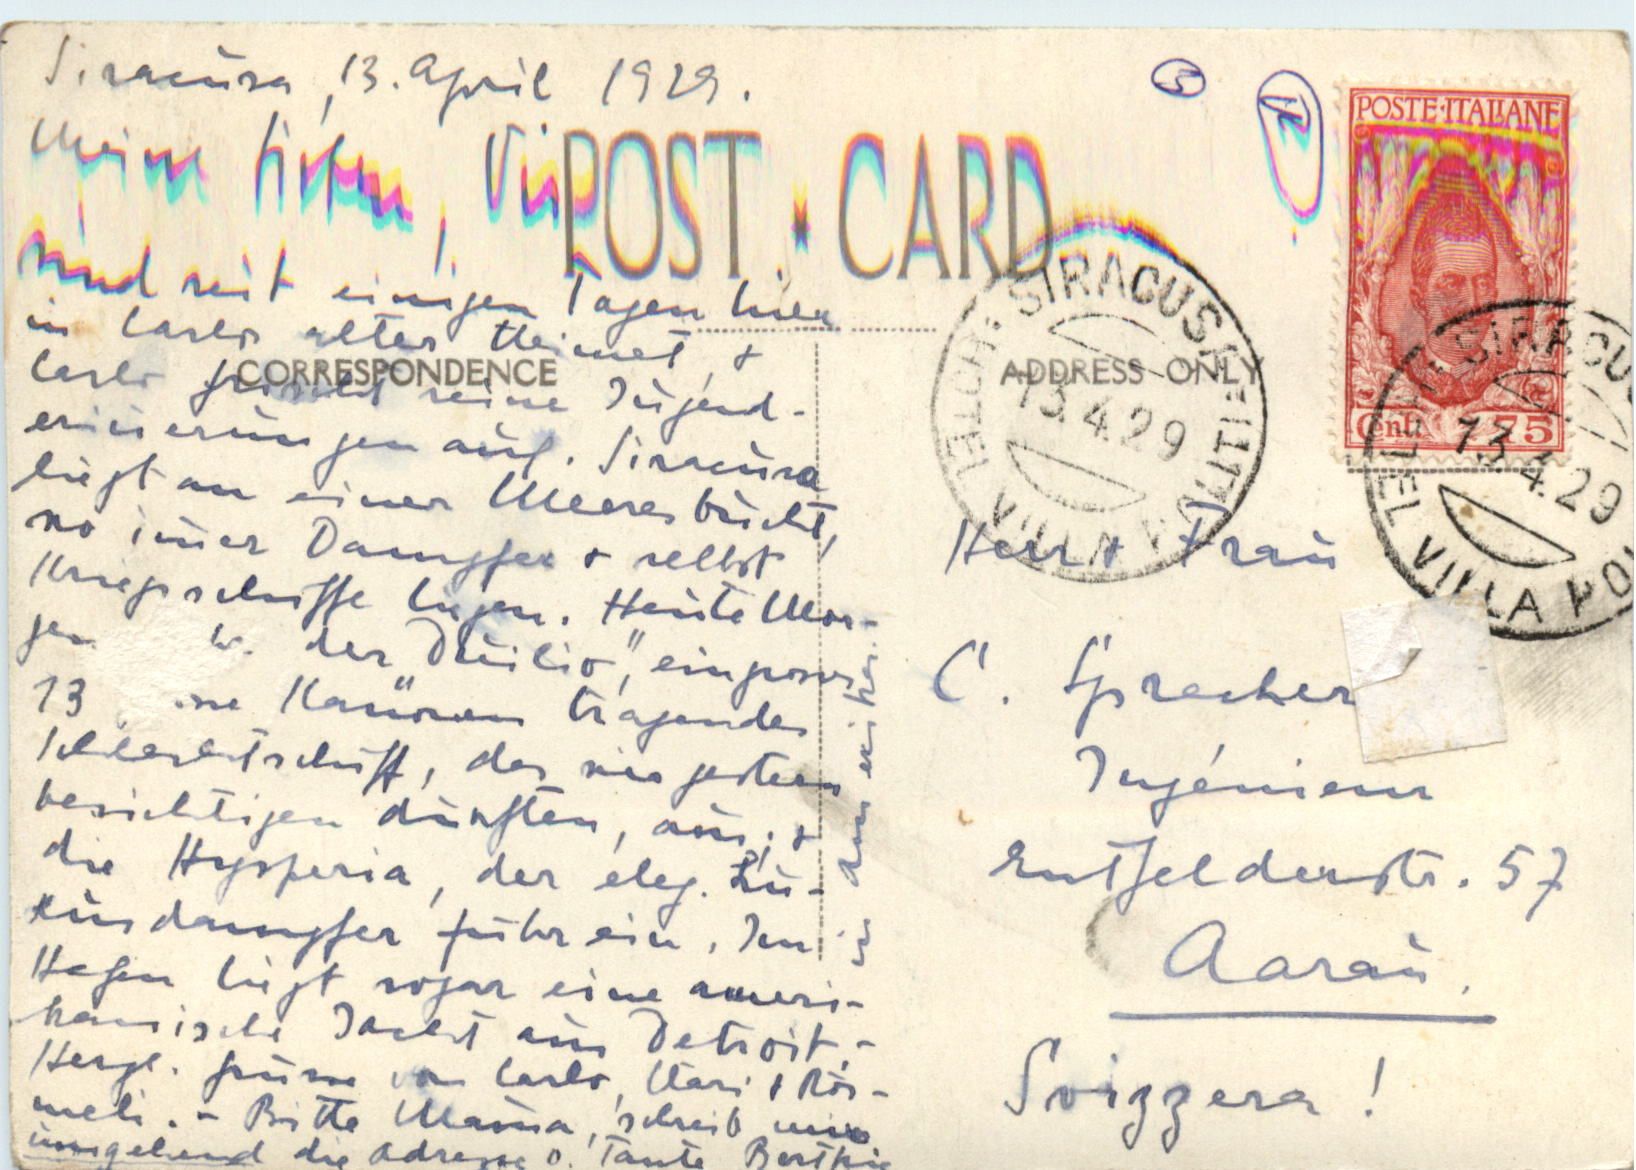 Siracusa, 13. April 1929.
Meine Lieben, Wir
sind seit einigen Tagen hier
in Carlo's alter Heimat, &
Carlo frischt seine Jugend-
erinerungen auf. Siracusa
liegt an einer Meeresbucht,
wo imer Dampfer & selbst
Kriegsschiffe liegen. Heute Mor-
gen der "Duilio", ein grosses
13 Kanonen tragendes
Schlachtschiff, das wir gestern
besichtigen durften, aus; &
die Hysperia, der eleg. Lu-
xusdampfer fuhr ein. Im
Hafen liegt sogar eine ameri-
kanische Jacht aus Detroit. -
Herzl. Grüsse von Carlo, Klari & Rös-
meli. - Bitte Mama, schreib mir
umgehend die Adresse v. Tante Berthie
POST CARD
CORRESPONDENCE
ADDRESS ONLY
3
POSTE·ITALIANE
Cent. 75
SIRACUSA
13.4.29
HOTEL VILLA POLITI
SIRACUS
13.4.29
HOTEL VILLA PO
Herr & Frau
C. Sprecher
Ingénieur
Entfelderstr. 57
Aarau,
Svizzera!